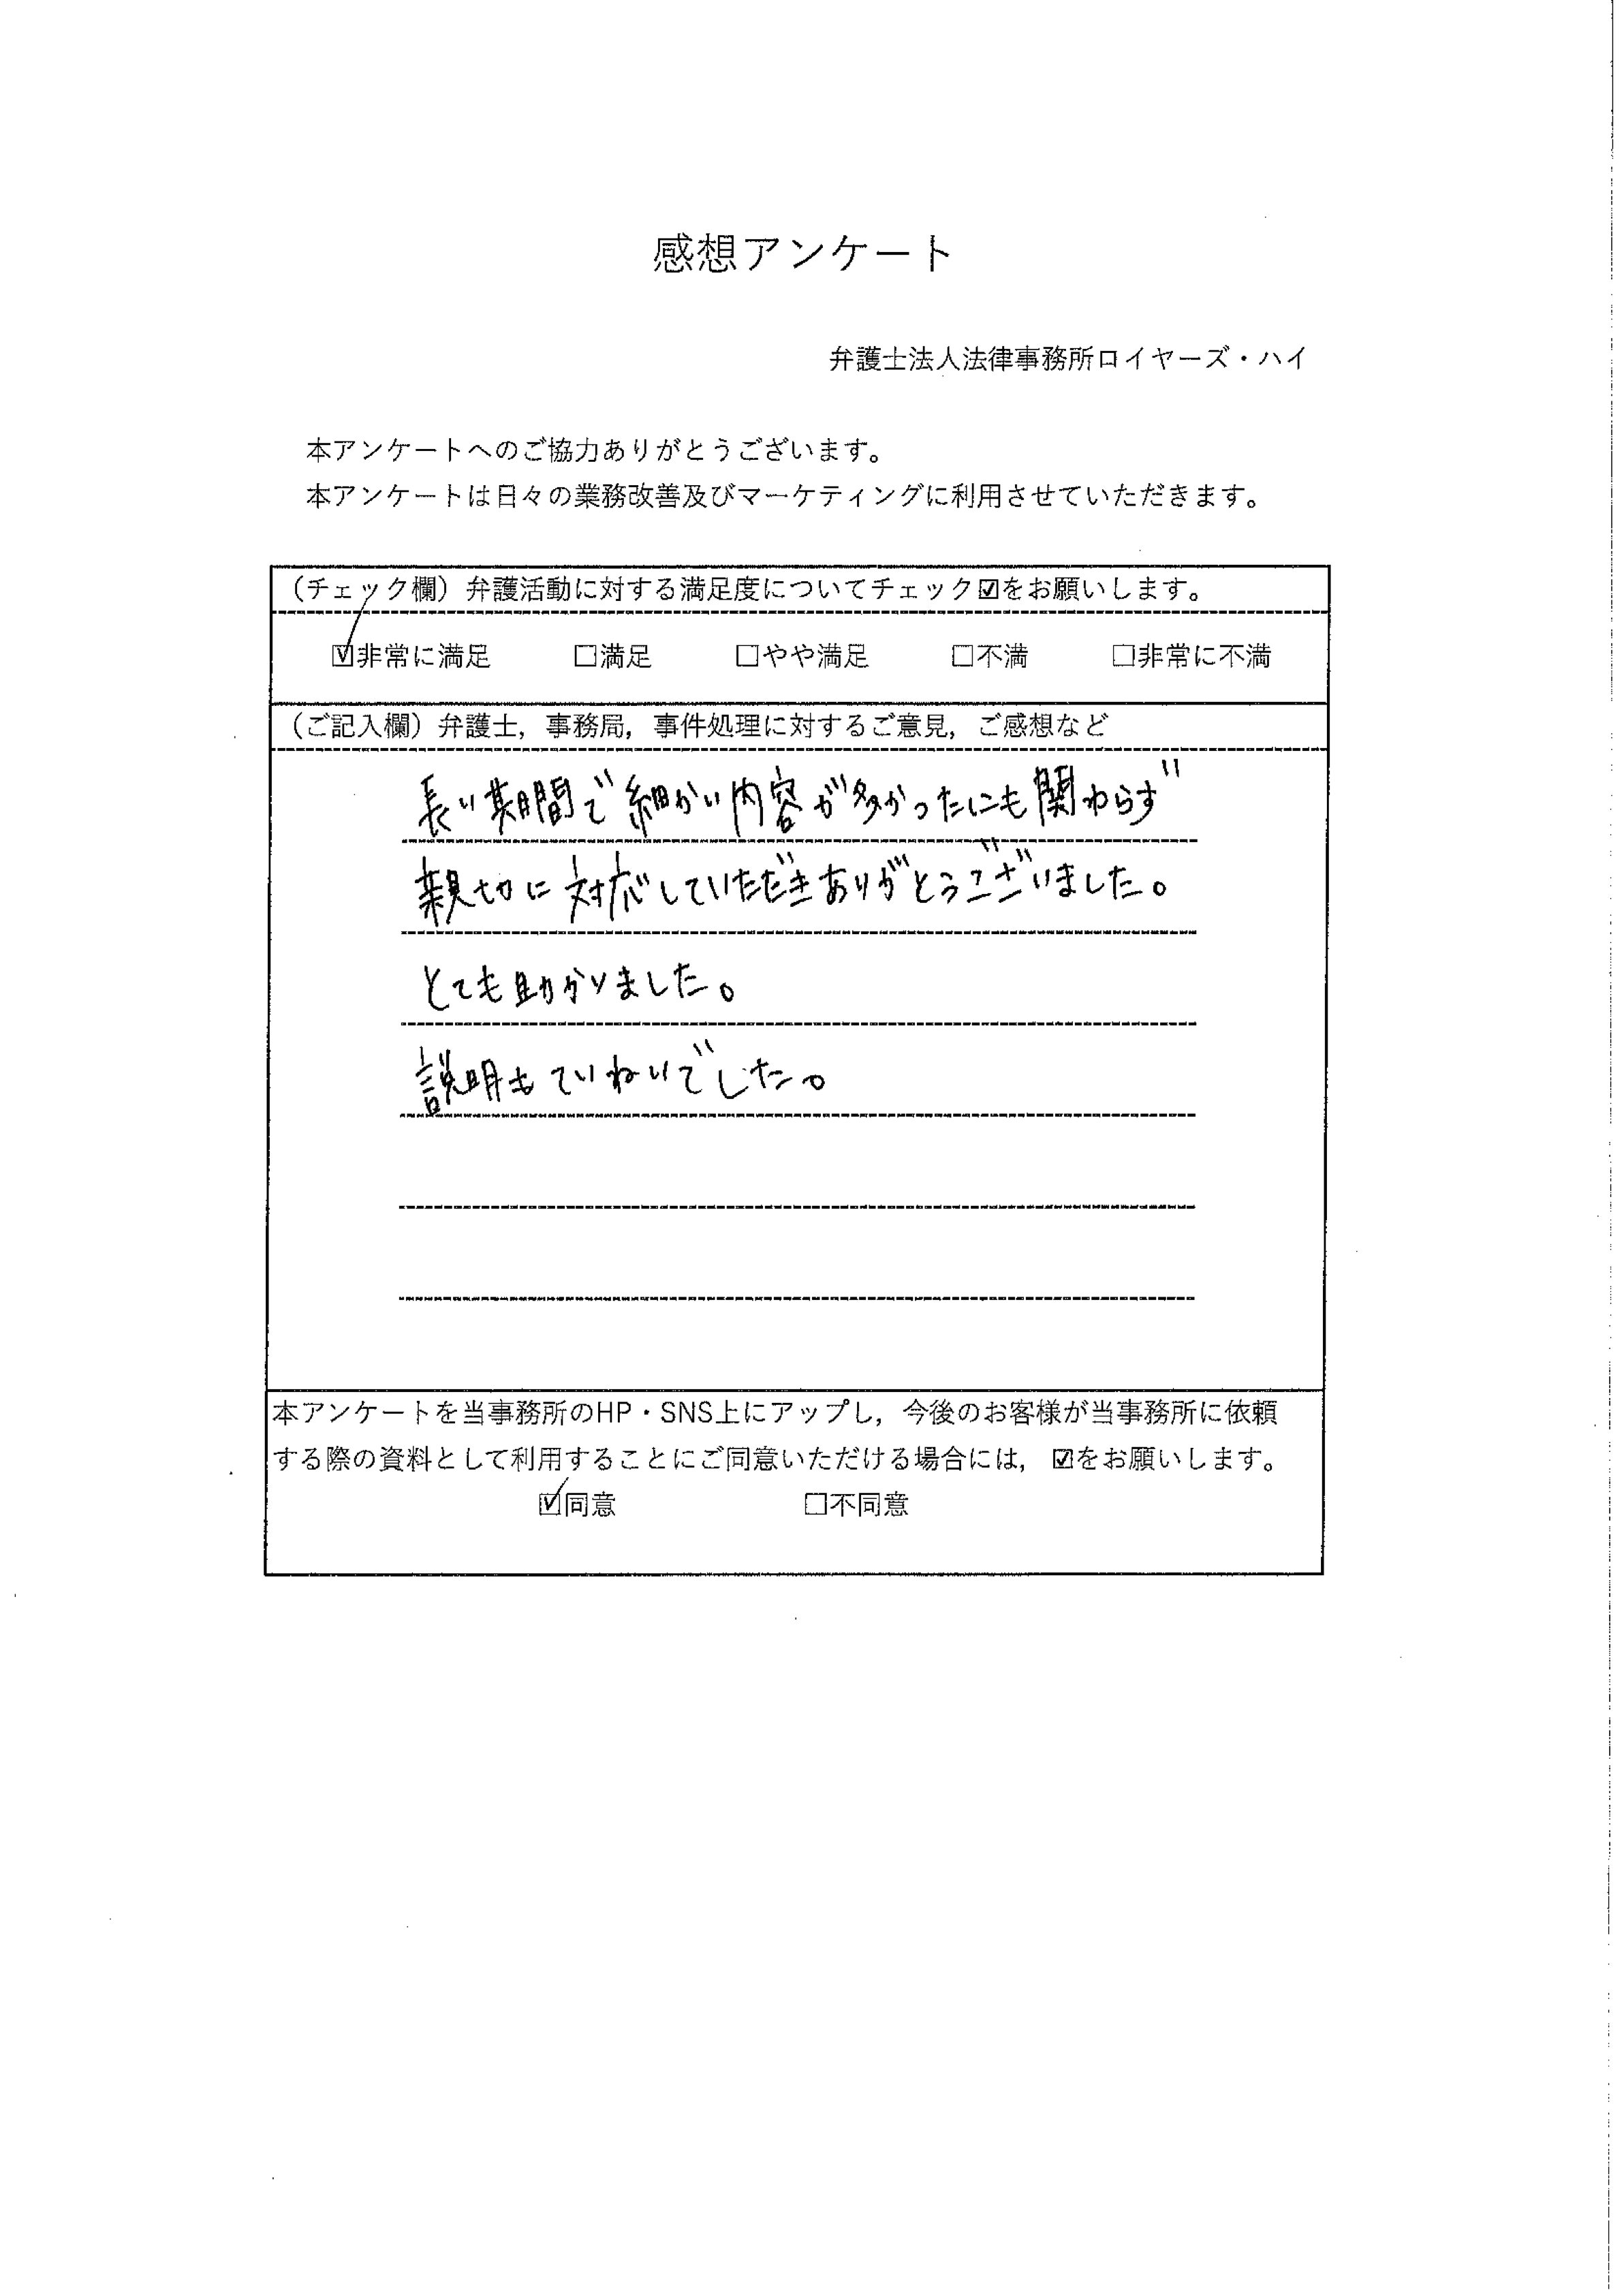 感想アンケート
弁護士法人法律事務所ロイヤーズ・ハイ
本アンケートへのご協力ありがとうございます。
本アンケートは日々の業務改善及びマーケティングに利用させていただきます。
（チェック欄）弁護活動に対する満足度についてチェック☑をお願いします。
☑非常に満足 □満足 □やや満足 □不満 □非常に不満
（ご記入欄）弁護士，事務局，事件処理に対するご意見，ご感想など
長い期間で細かい内容が多かったにも関わらず
親切に対応していただきありがとうございました。
とても助かりました。
説明もていねいでした。
本アンケートを当事務所のHP・SNS上にアップし，今後のお客様が当事務所に依頼
する際の資料として利用することにご同意いただける場合には，☑をお願いします。
☑同意 □不同意